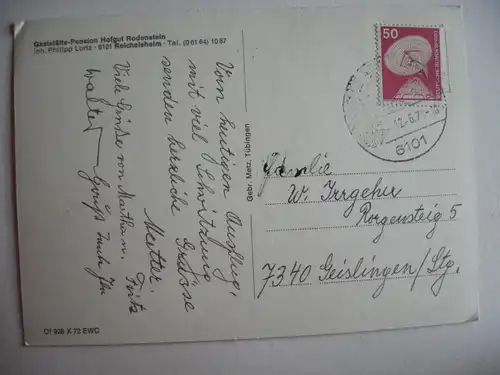 Gaststätte-Pension Hofgut Rodenstein
Inh. Philipp Lortz · 6101 Reichelsheim · Tel. (0 61 64) 10 87
Vom heutigen Ausflug,
mit viel Schwitzung
senden herzliche Grüsse
Mutter.
Viele Grüße von Martha u. Fritz
Walter
Gebr. Metz, Tübingen
50
12.-6.7
6101
Familie
W. Irrgeher
5
7340 Geislingen/Stg.
Of 926 X 72 EWC